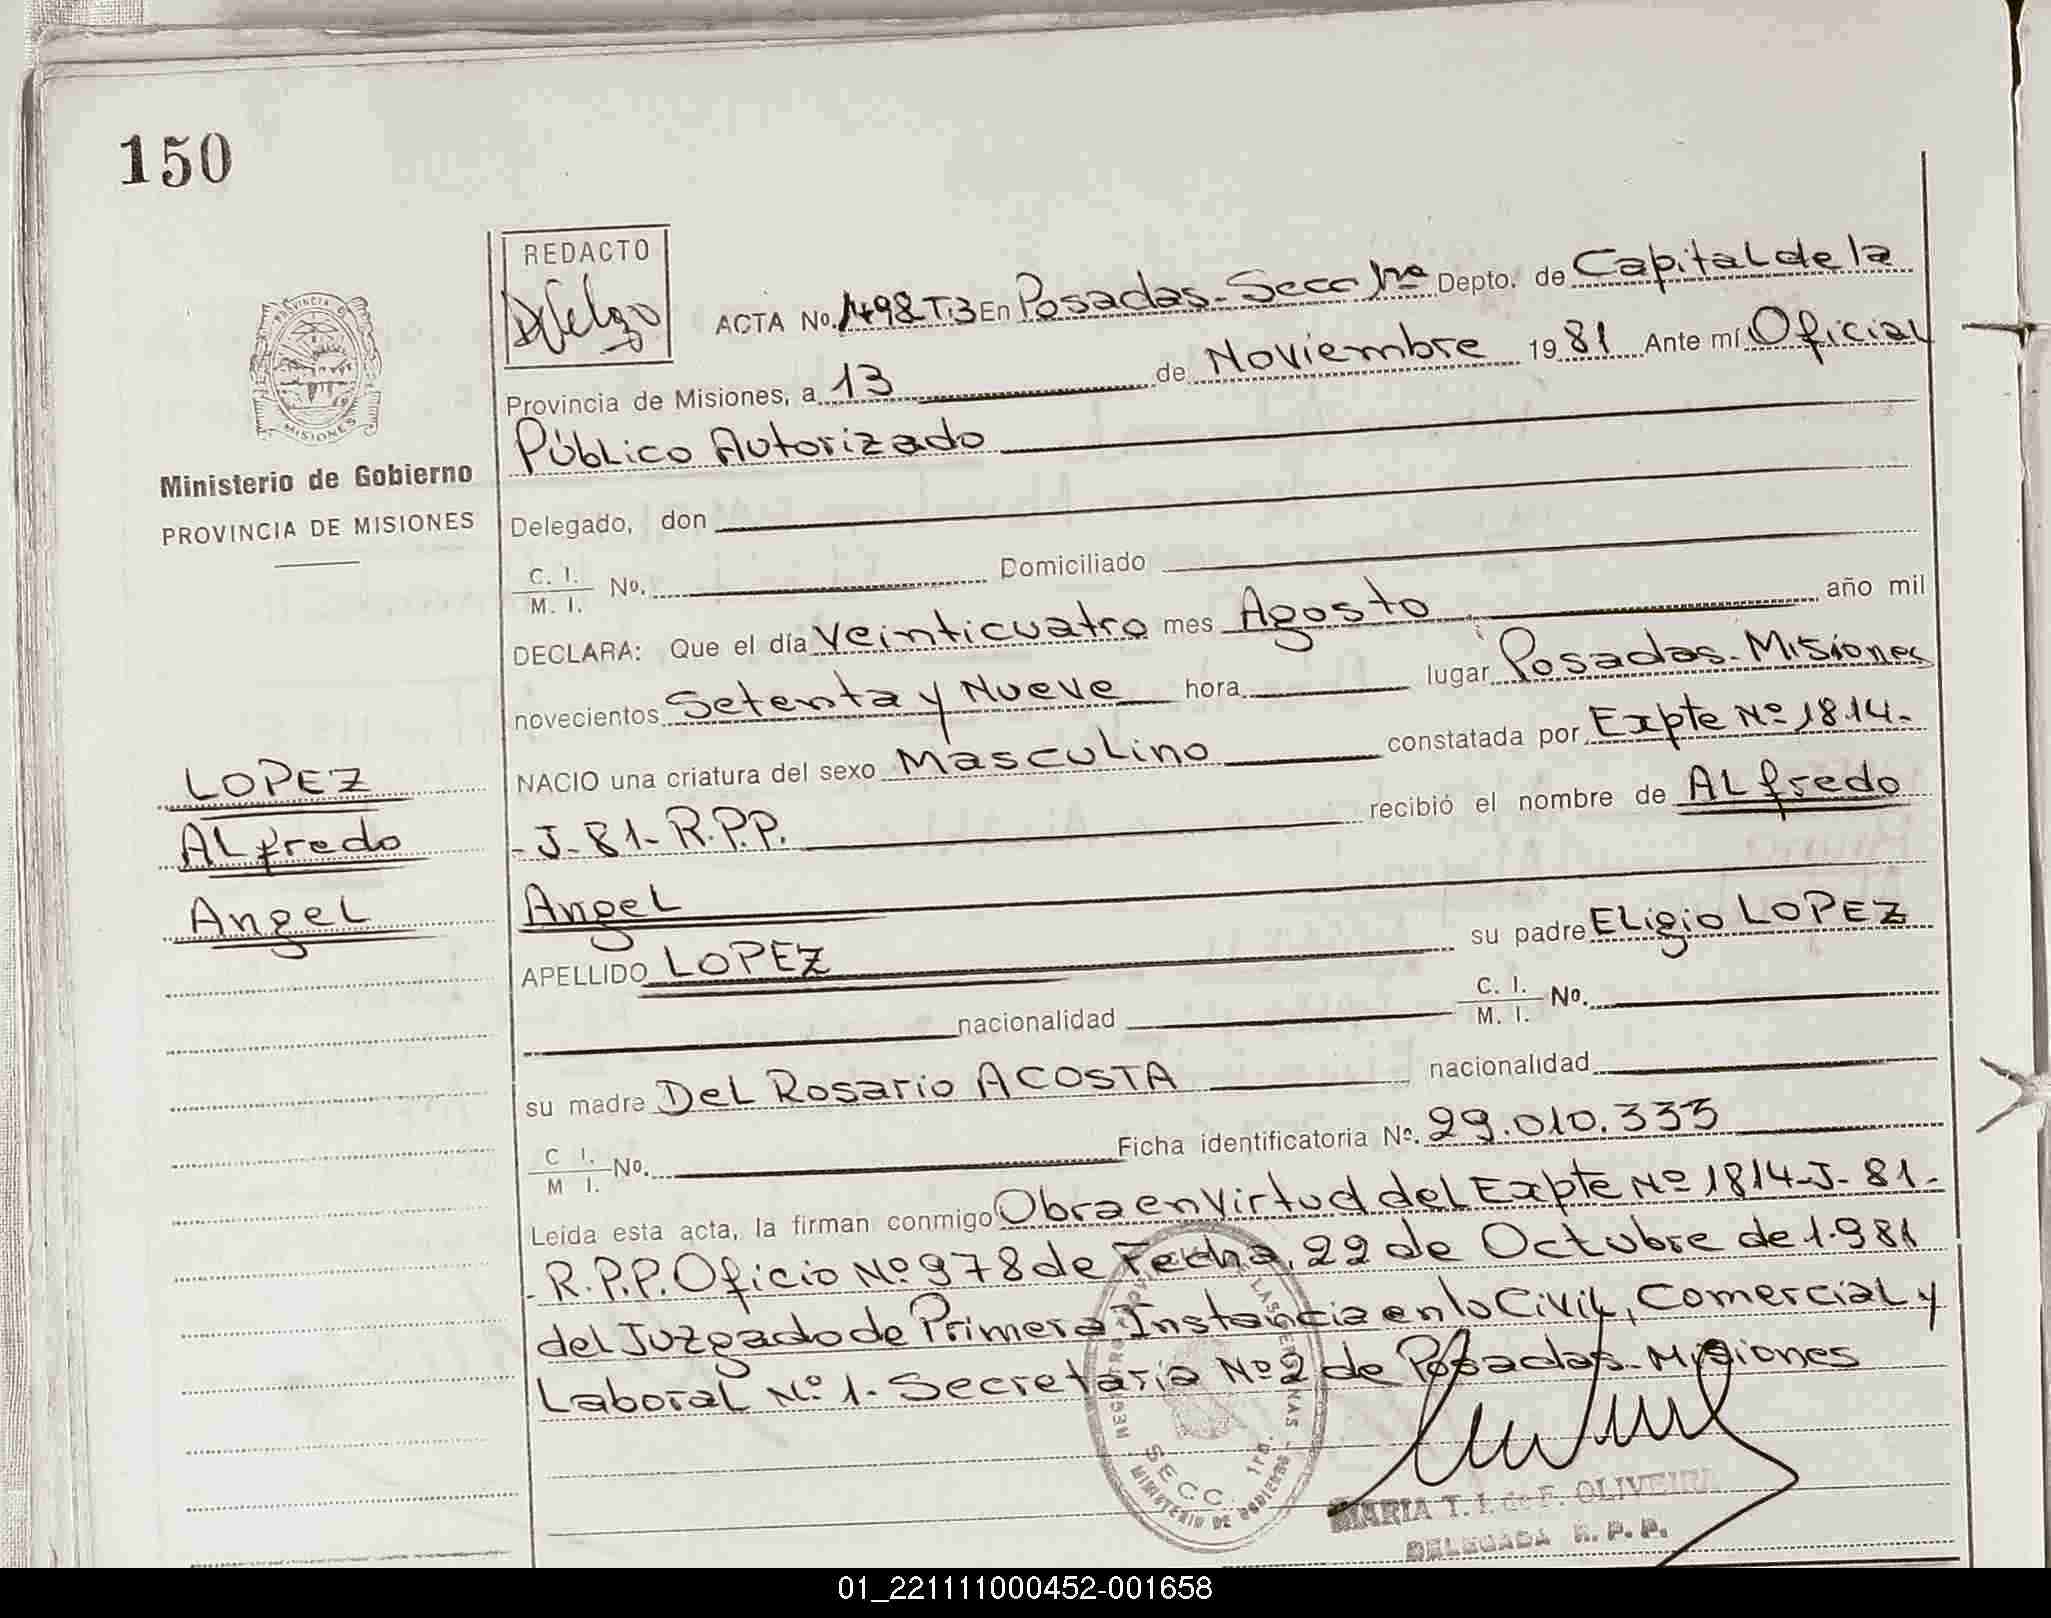 150
REDACTO
ACTA No. 1498 T.3 En Posadas - Secc 1ra Depto. de Capital de la
Provincia de Misiones, a 13 de Noviembre 1981 Ante mí Oficial
Público Autorizado
PROVINCIA DE
MISIONES
Ministerio de Gobierno
PROVINCIA DE MISIONES
Delegado, don
C. I.
M. I. No. Domiciliado
DECLARA: Que el día Veinticuatro mes Agosto año mil
novecientos Setenta y Nueve hora lugar Posadas - Misiones
NACIO una criatura del sexo Masculino constatada por Expte Nº 1814-
- J - 81 - R.P.P. recibió el nombre de ALfredo
AngeL
LOPEZ
ALfredo
AngeL
APELLIDO LOPEZ su padre ELigio LOPEZ
nacionalidad C. I.
M. I. No.
su madre DeL Rosario ACOSTA nacionalidad
C I.
M I. No. Ficha identificatoria No. 29.010.333
Leída esta acta, la firman conmigo Obra en Virtud del Expte Nº 1814-J-81-
- R.P.P. Oficio Nº 978 de Fecha, 22 de Octubre de 1.981
del Juzgado de Primera Instancia en lo Civil, Comercial y
Laboral Nº 1 - Secretaría Nº 2 de Posadas - Misiones
SECC. 1ra.
MINISTERIO DE GOBIERNO
MARIA T. I. de F. OLIVEIRA
DELEGADA R. P. P.
01_221111000452-001658